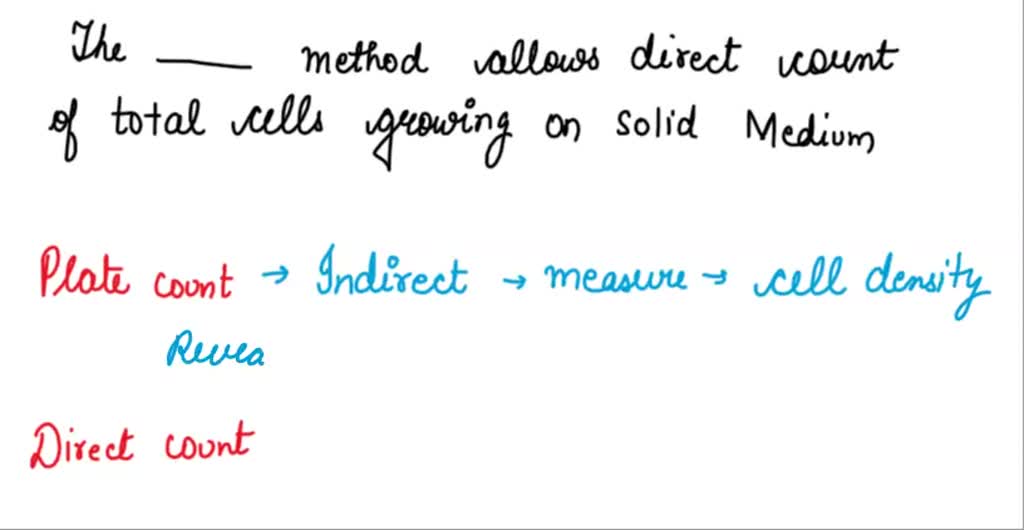 The ____ method allows direct count
of total cells growing on solid Medium
Plate count → Indirect → measure → cell density
Revea
Direct count